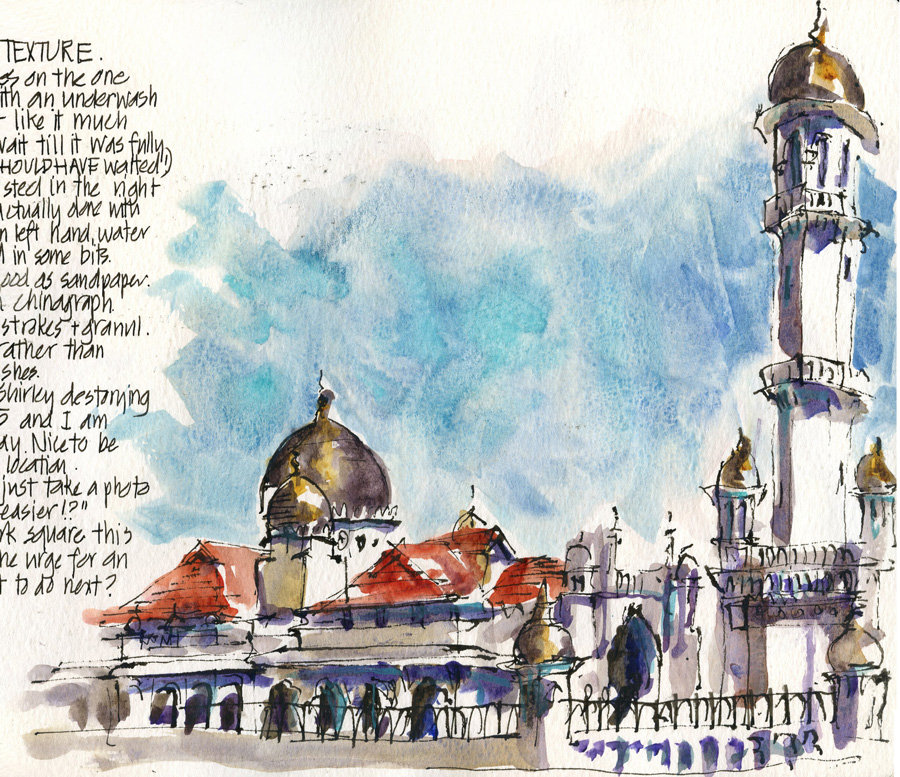 TEXTURE.
es on the one
ith an underwash
like it much
wait till it was fully
SHOULD HAVE waited!)
sted in the right
actually done with
n left hand, water
d in some bits.
good as sandpaper.
chinagraph
strokes + granul.
rather than
shes.
Shirley destorying
5 and I am
ay. Nice to be
location.
just take a photo
easier!?"
rk square this
he urge for an
t to do next?